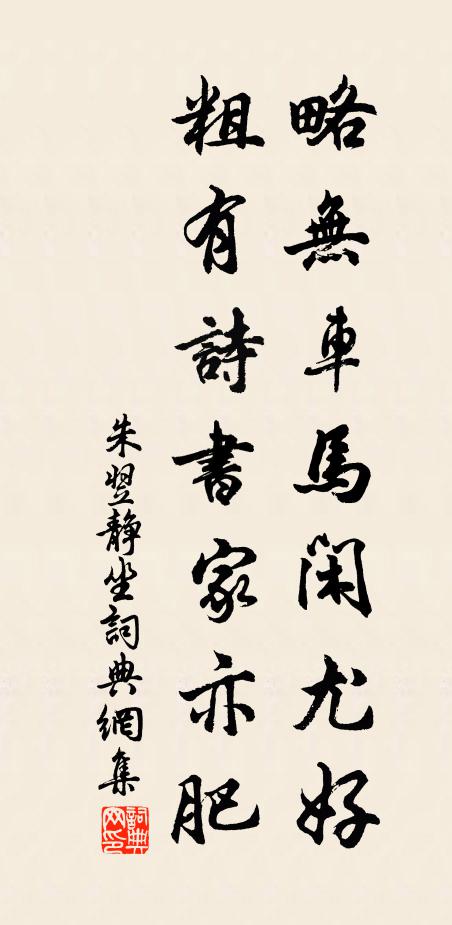 略無車馬閑尤好
粗有詩書家亦肥
朱翌静坐詞典網集
詞典網印